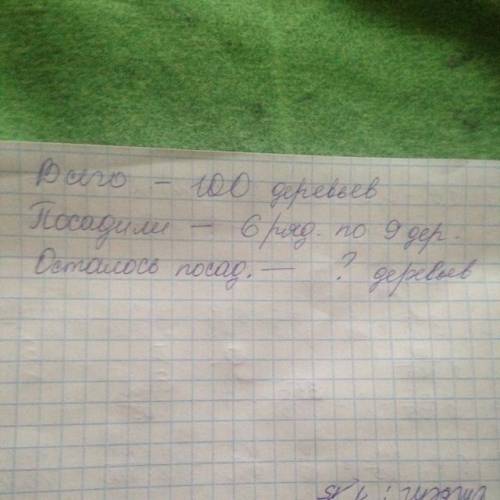 Всего - 100 деревьев
Посадили - 6 ряд. по 9 дер.
Осталось посад. - ? деревьев